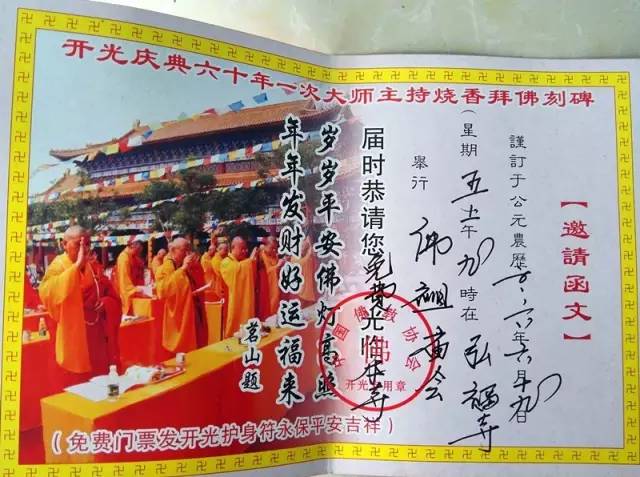 开光庆典六十年一次大师主持烧香拜佛刻碑
【邀請函文】
謹訂于公元農歷二〇一六年六月十九日
(星期五上午九時在弘福寺
舉行佛祖廟会
届时恭请您免费光临本寺
岁岁平安佛灯高照
年年发财好运福来
茗山题
中国佛教协会
佛
开光专用章
(免费门票发开光护身符永保平安吉祥)